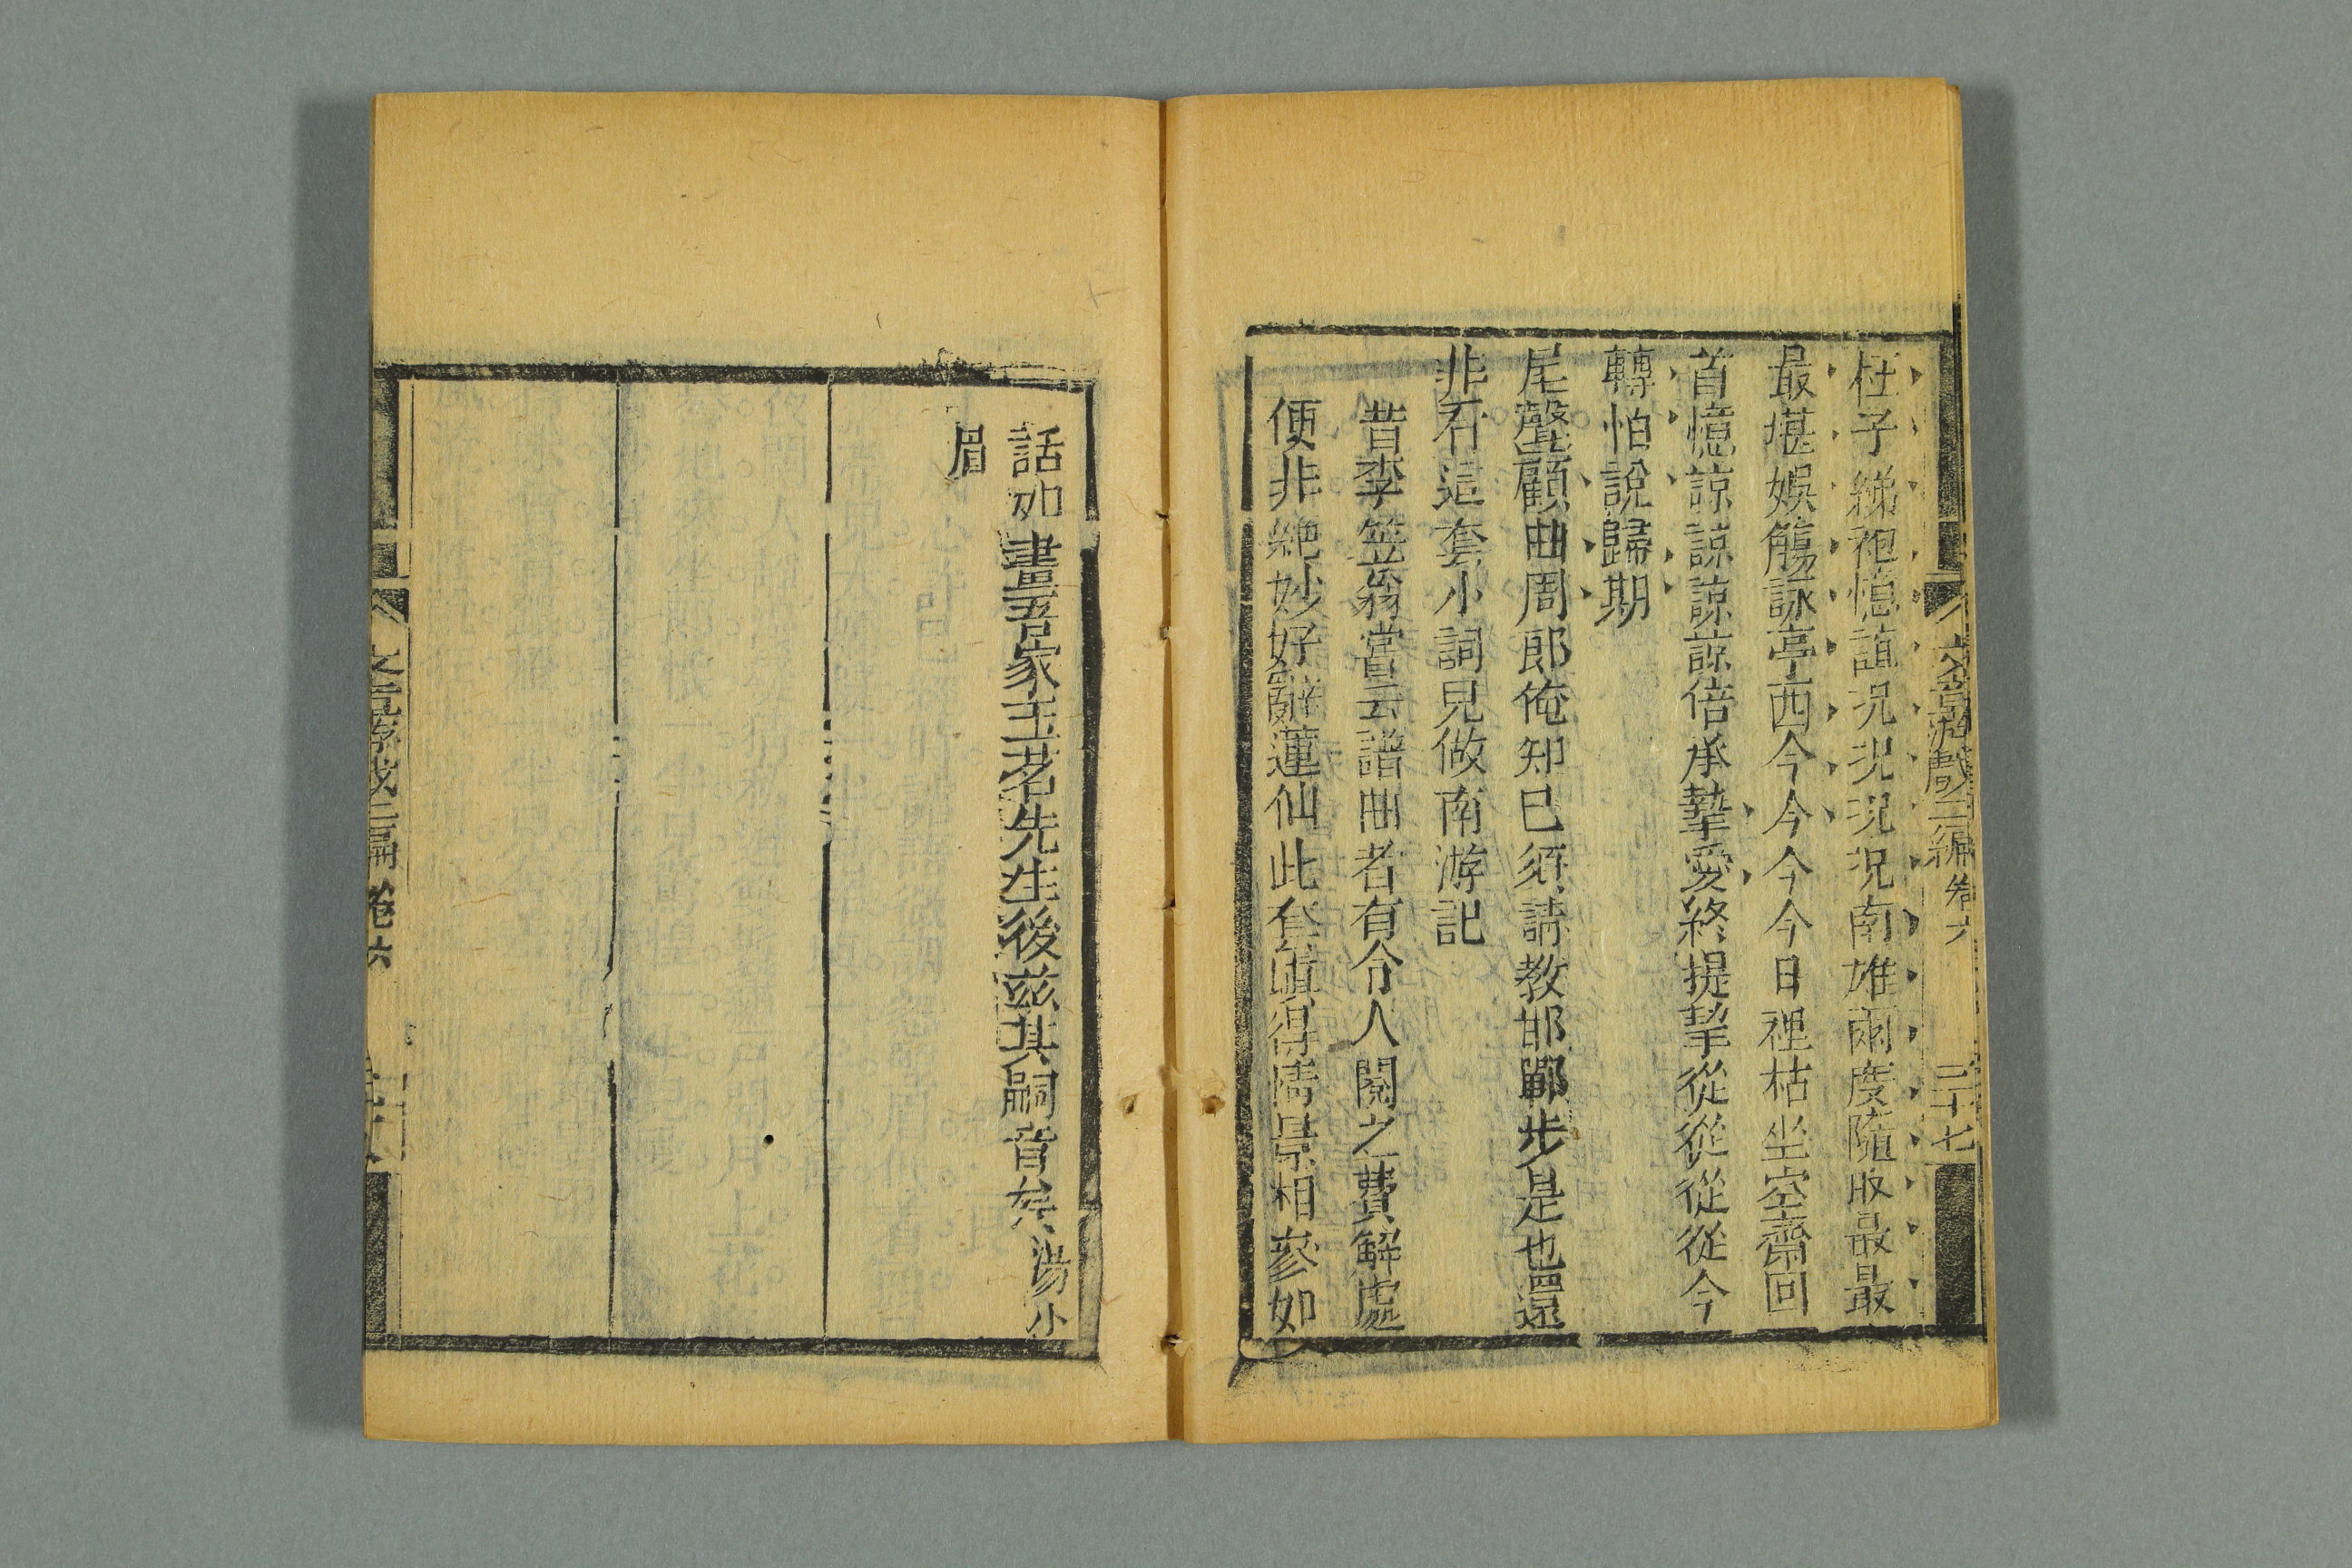 文章游戲二編 卷六 三十七
杜子綈袍憶誼況況況況南雄兩度隨驂最最
最堪娛觴詠亭西今今今今日裡枯坐空齋回
首憶諒諒諒諒倍承摯愛終提挈從從從從今
轉怕說歸期
尾聲顧曲周郎俺知已須請教邯鄲步是也還
非不這套小詞見做南游記
昔李笠翁嘗云譜曲者有令人閱之費解處
便非絶妙好辭蓮仙此套眞得情景相參如
話如畫吾家玉茗先生後兹其嗣音矣湯小
眉
卷六